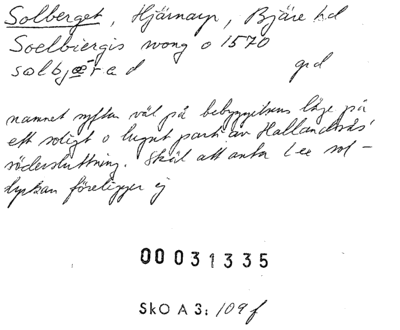 Solberget, Hjärnarp, Bjäre hd
Soelbiergis wong o 1570
solbjærad grd
namnet syftar väl på bebyggelsens läge på
ett soligt o lugnt parti av Hallandsås'
södersluttning. Skäl att anta sol-
lyckan föreligger ej
00 031335
SkO A 3: 109 f